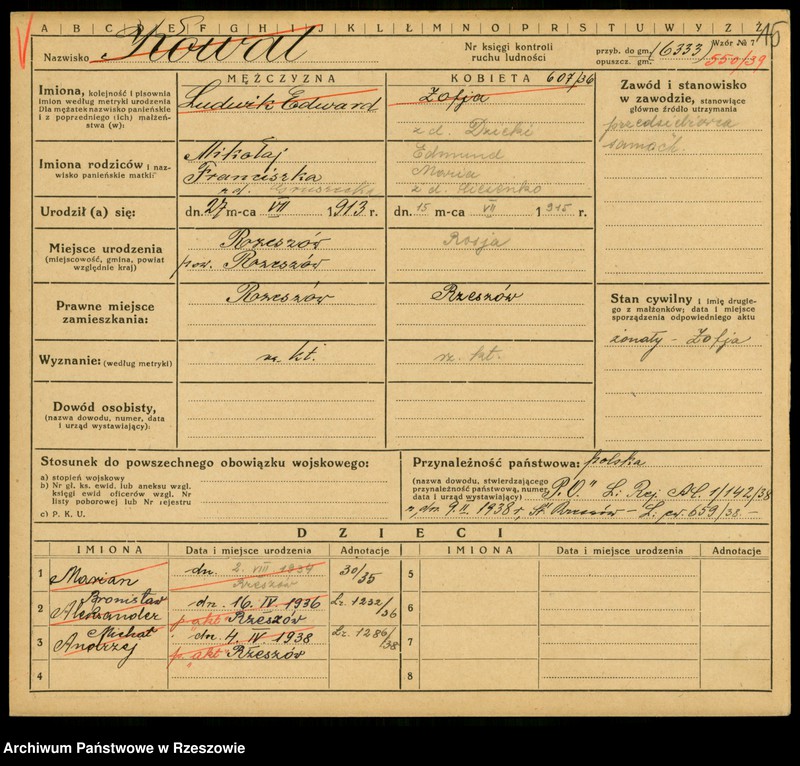 A B C D E F G H I J K L Ł M N O P R S T U W Y Z Ż
15
Nazwisko Kowal
Nr księgi kontroli ruchu ludności
przyb. do gm. (6333) Wzór № 7
opuszcz. gm. 550/39
MĘŻCZYZNA
KOBIETA 607/36
Imiona, kolejność i pisownia imion według metryki urodzenia
Dla mężatek nazwisko panieńskie i z poprzedniego (ich) małżeństwa (w):
Ludwik Edward
Zofja
z d. Dzicki
Imiona rodziców i nazwisko panieńskie matki:
Mikołaj
Franciszka
z d.
Edmund
Maria
z d.
Urodził (a) się:
dn. 27 m-ca VII 1913 r.
dn. 15 m-ca VII 1915 r.
Miejsce urodzenia
(miejscowość, gmina, powiat względnie kraj)
Rzeszów
pow. Rzeszów
Rosja
Prawne miejsce zamieszkania:
Rzeszów
Rzeszów
Wyznanie: (według metryki)
rz. kt.
rz. kt.
Dowód osobisty,
(nazwa dowodu, numer, data i urząd wystawiający):
Zawód i stanowisko w zawodzie, stanowiące główne źródło utrzymania
przedsiębiorca
Stan cywilny i imię drugiego z małżonków; data i miejsce sporządzenia odpowiedniego aktu
żonaty - Zofja
Stosunek do powszechnego obowiązku wojskowego:
a) stopień wojskowy
b) Nr gł. ks. ewid. lub aneksu wzgl. księgi ewid oficerów wzgl. Nr listy poborowej lub Nr rejestru
c) P. K. U.
Przynależność państwowa: polska
(nazwa dowodu, stwierdzającego przynależność państwową, numer, data i urząd wystawiający)
"P.O." L: Rej. AC. 1/142/38
z dn. 9.II. 1938 r, St. Rzeszów - L: ew. 659/38 -
DZIECI
IMIONA Data i miejsce urodzenia Adnotacje IMIONA Data i miejsce urodzenia Adnotacje
1 Marian dn. 2. VIII 1934 Rzeszów 30/35
2 Bronisław Aleksander dn. 16. IV. 1936 p. akt Rzeszów Lz. 1232/36
3 Michał Andrzej dn. 4. IV. 1938 p. "akt" Rzeszów Lz. 1286/38
4
5
6
7
8
Archiwum Państwowe w Rzeszowie